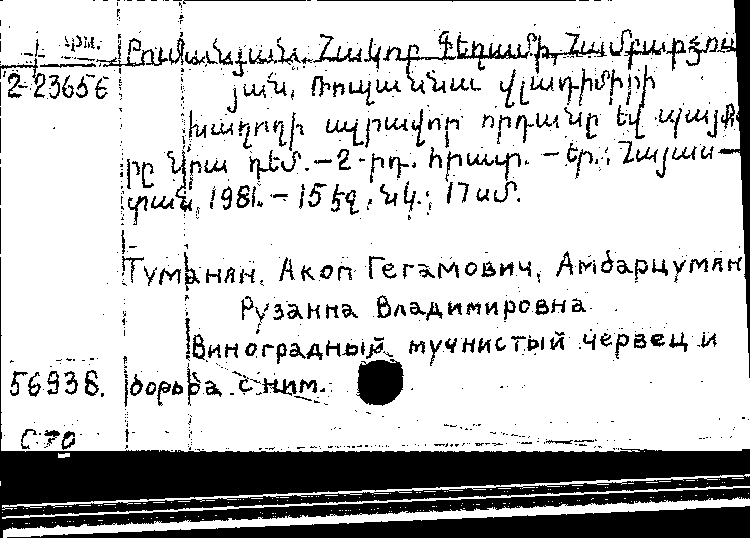 арм.
Թումանյան, Հակոբ Գեղամի, Համբարձու
2-23656
յան, Ռուզաննա Վլադիմիրի
Խաղողի ալրավոր որդանը եվ պայքա
րը նրա դեմ. — 2-րդ. հրատ. — Եր.: Հայաս—
տան, 1981. — 15 էջ. նկ.; 17 սմ.
Туманян, Акоп Гегамович, Амбарцумян
Рузанна Владимировна
Виноградный мучнистый червец и
56938. борьба с ним.
С70